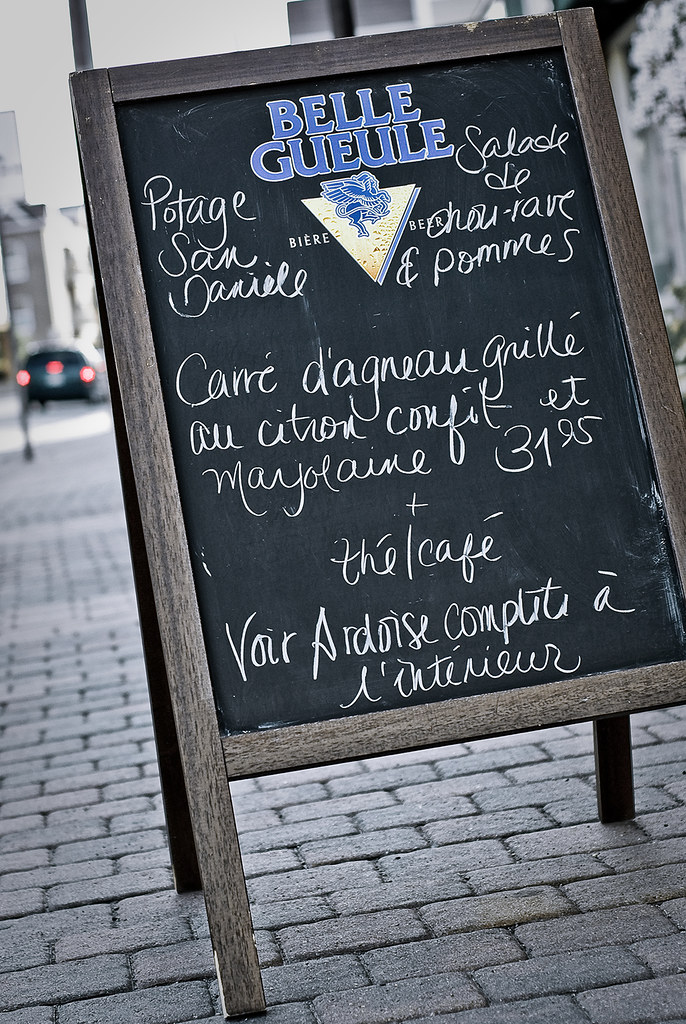 BELLE
GUEULE
BIÈRE BEER
Potage
San
Danièle
Salade
de
chou-rave
& pommes
Carré d'agneau grillé
au citron confit et
marjolaine 31 95
+
thé/café
Voir Ardoise complète à
l'intérieur